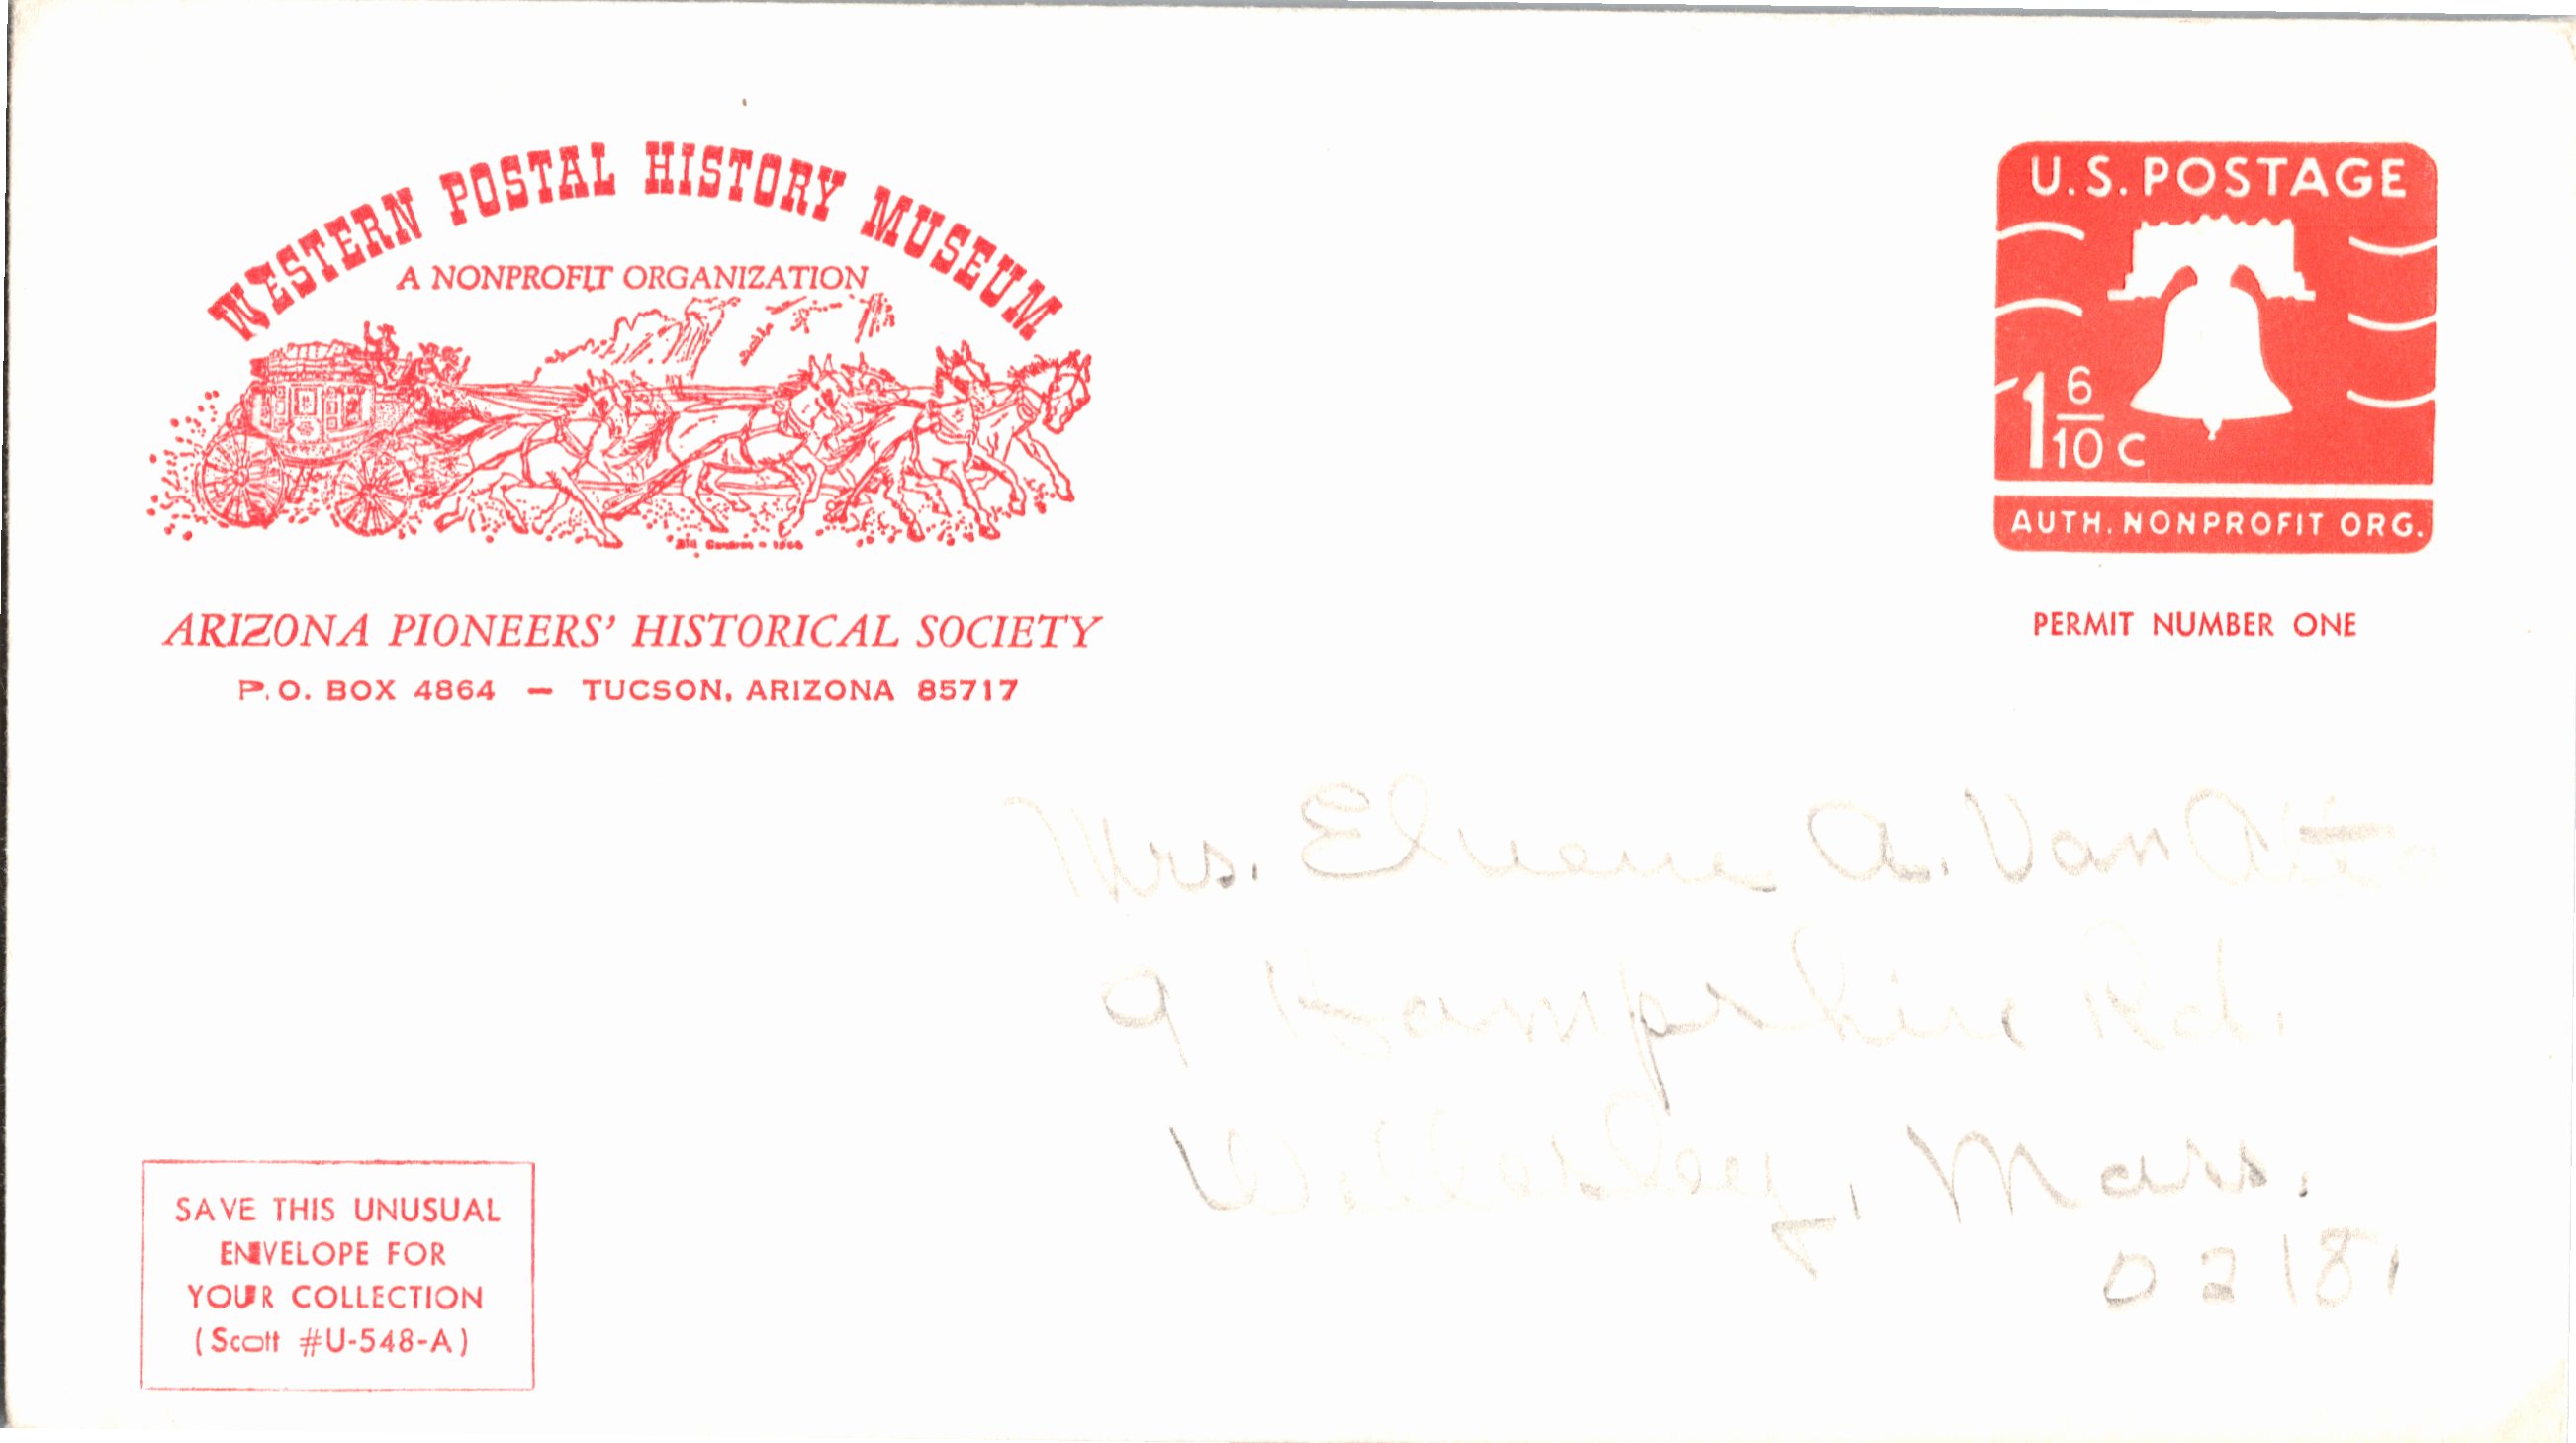 WESTERN POSTAL HISTORY MUSEUM
A NONPROFIT ORGANIZATION
ARIZONA PIONEERS' HISTORICAL SOCIETY
P. O. BOX 4864 — TUCSON, ARIZONA 85717
U.S. POSTAGE
1 6/10 c
AUTH. NONPROFIT ORG.
PERMIT NUMBER ONE
Mrs. A. Van
9 Hampshire Rd.
Wellesley, Mass.
02181
SAVE THIS UNUSUAL
ENVELOPE FOR
YOUR COLLECTION
(Scott #U-548-A)